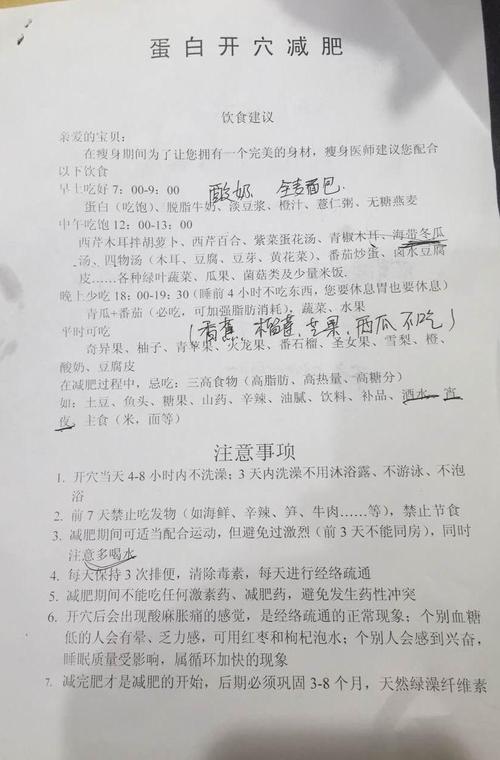 蛋白开穴减肥
饮食建议
亲爱的宝贝:
在瘦身期间为了让您拥有一个完美的身材，瘦身医师建议您配合
以下饮食
早上吃好 7：00-9：00 酸奶 全麦面包.
蛋白（吃饱）、脱脂牛奶、淡豆浆、橙汁、薏仁粥、无糖燕麦
中午吃饱 12：00-13：00
西芹木耳拌胡萝卜、西芹百合、紫菜蛋花汤、青椒木耳、海带冬瓜
汤、四物汤（木耳、豆腐、豆芽、黄花菜）、番茄炒蛋、卤水豆腐
皮……各种绿叶蔬菜、瓜果、菌菇类及少量米饭.
晚上少吃 18：00-19：30（睡前 4 小时不吃东西，您要休息胃也要休息）
青瓜+番茄（必吃，可加强脂肪消耗），蔬菜、水果
平时可吃 （香蕉、榴莲、芒果、西瓜不吃）
奇异果、柚子、青苹果、火龙果、番石榴、圣女果、雪梨、橙、
酸奶、豆腐皮
在减肥过程中，忌吃：三高食物（高脂肪、高热量、高糖分）
如：土豆、鱼头、糖果、山药、辛辣、油腻、饮料、补品、酒水、宵
夜、主食（米，面等）
注意事项
1. 开穴当天 4-8 小时内不洗澡；3 天内洗澡不用沐浴露、不游泳、不泡
浴
2. 前 7 天禁止吃发物（如海鲜、辛辣、笋、牛肉……等），禁止节食
3. 减肥期间可适当配合运动，但避免过激烈（前 3 天不能同房），同时
注意多喝水
4. 每天保持 3 次排便，清除毒素，每天进行经络疏通
5. 减肥期间不能吃任何激素药、减肥药，避免发生药性冲突
6. 开穴后会出现酸麻胀痛的感觉，是经络疏通的正常现象；个别血糖
低的人会有晕、乏力感，可用红枣和枸杞泡水；个别人会感到兴奋，
睡眠质量受影响，属循环加快的现象
7. 减完肥才是减肥的开始，后期必须巩固 3-8 个月，天然绿藻纤维素